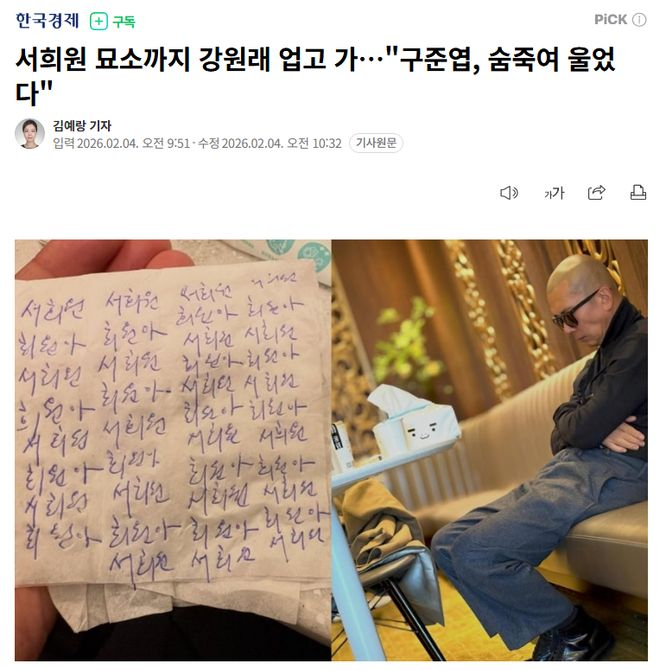 한국경제 구독
PiCK
서희원 묘소까지 강원래 업고 가…"구준엽, 숨죽여 울었
다"
김예랑 기자
입력 2026.02.04. 오전 9:51 · 수정 2026.02.04. 오전 10:32 기사원문
가가
서희원 서희원 서희원 서희원
희원아 희원아 희원아 희원아
서희원 서희원 서희원 서희원
희원아 희원아 희원아 희원아
서희원 서희원 서희원 서희원
희원아 희원아 희원아 희원아
서희원 서희원 서희원 서희원
희원아 희원아 희원아 희원아
서희원 서희원 서희원